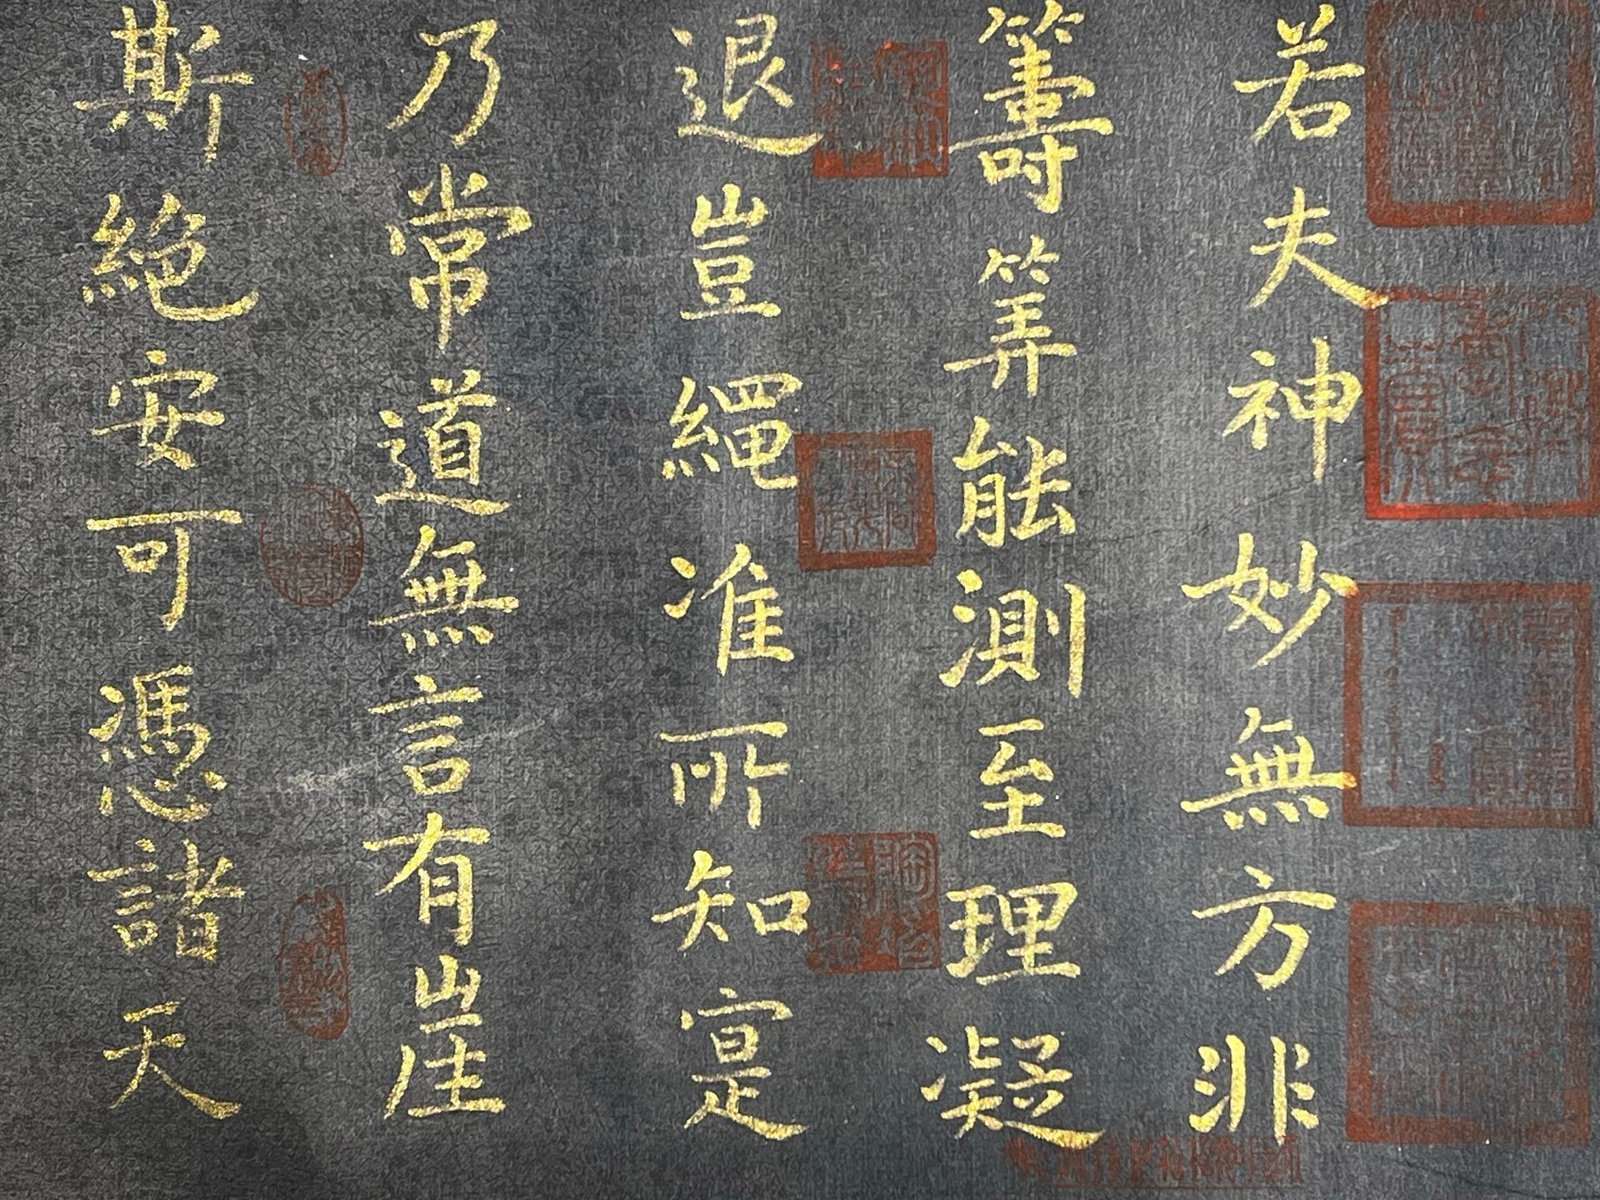 若夫神妙無方非
籌筭能測至理凝
退豈繩准所知寔
乃常道無言有崖
斯絕安可憑諸天